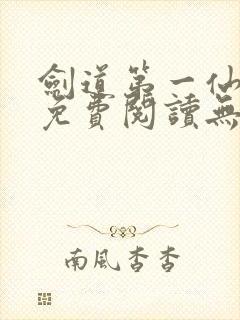 劍道第一仙
免費閱讀無
南風杳杳